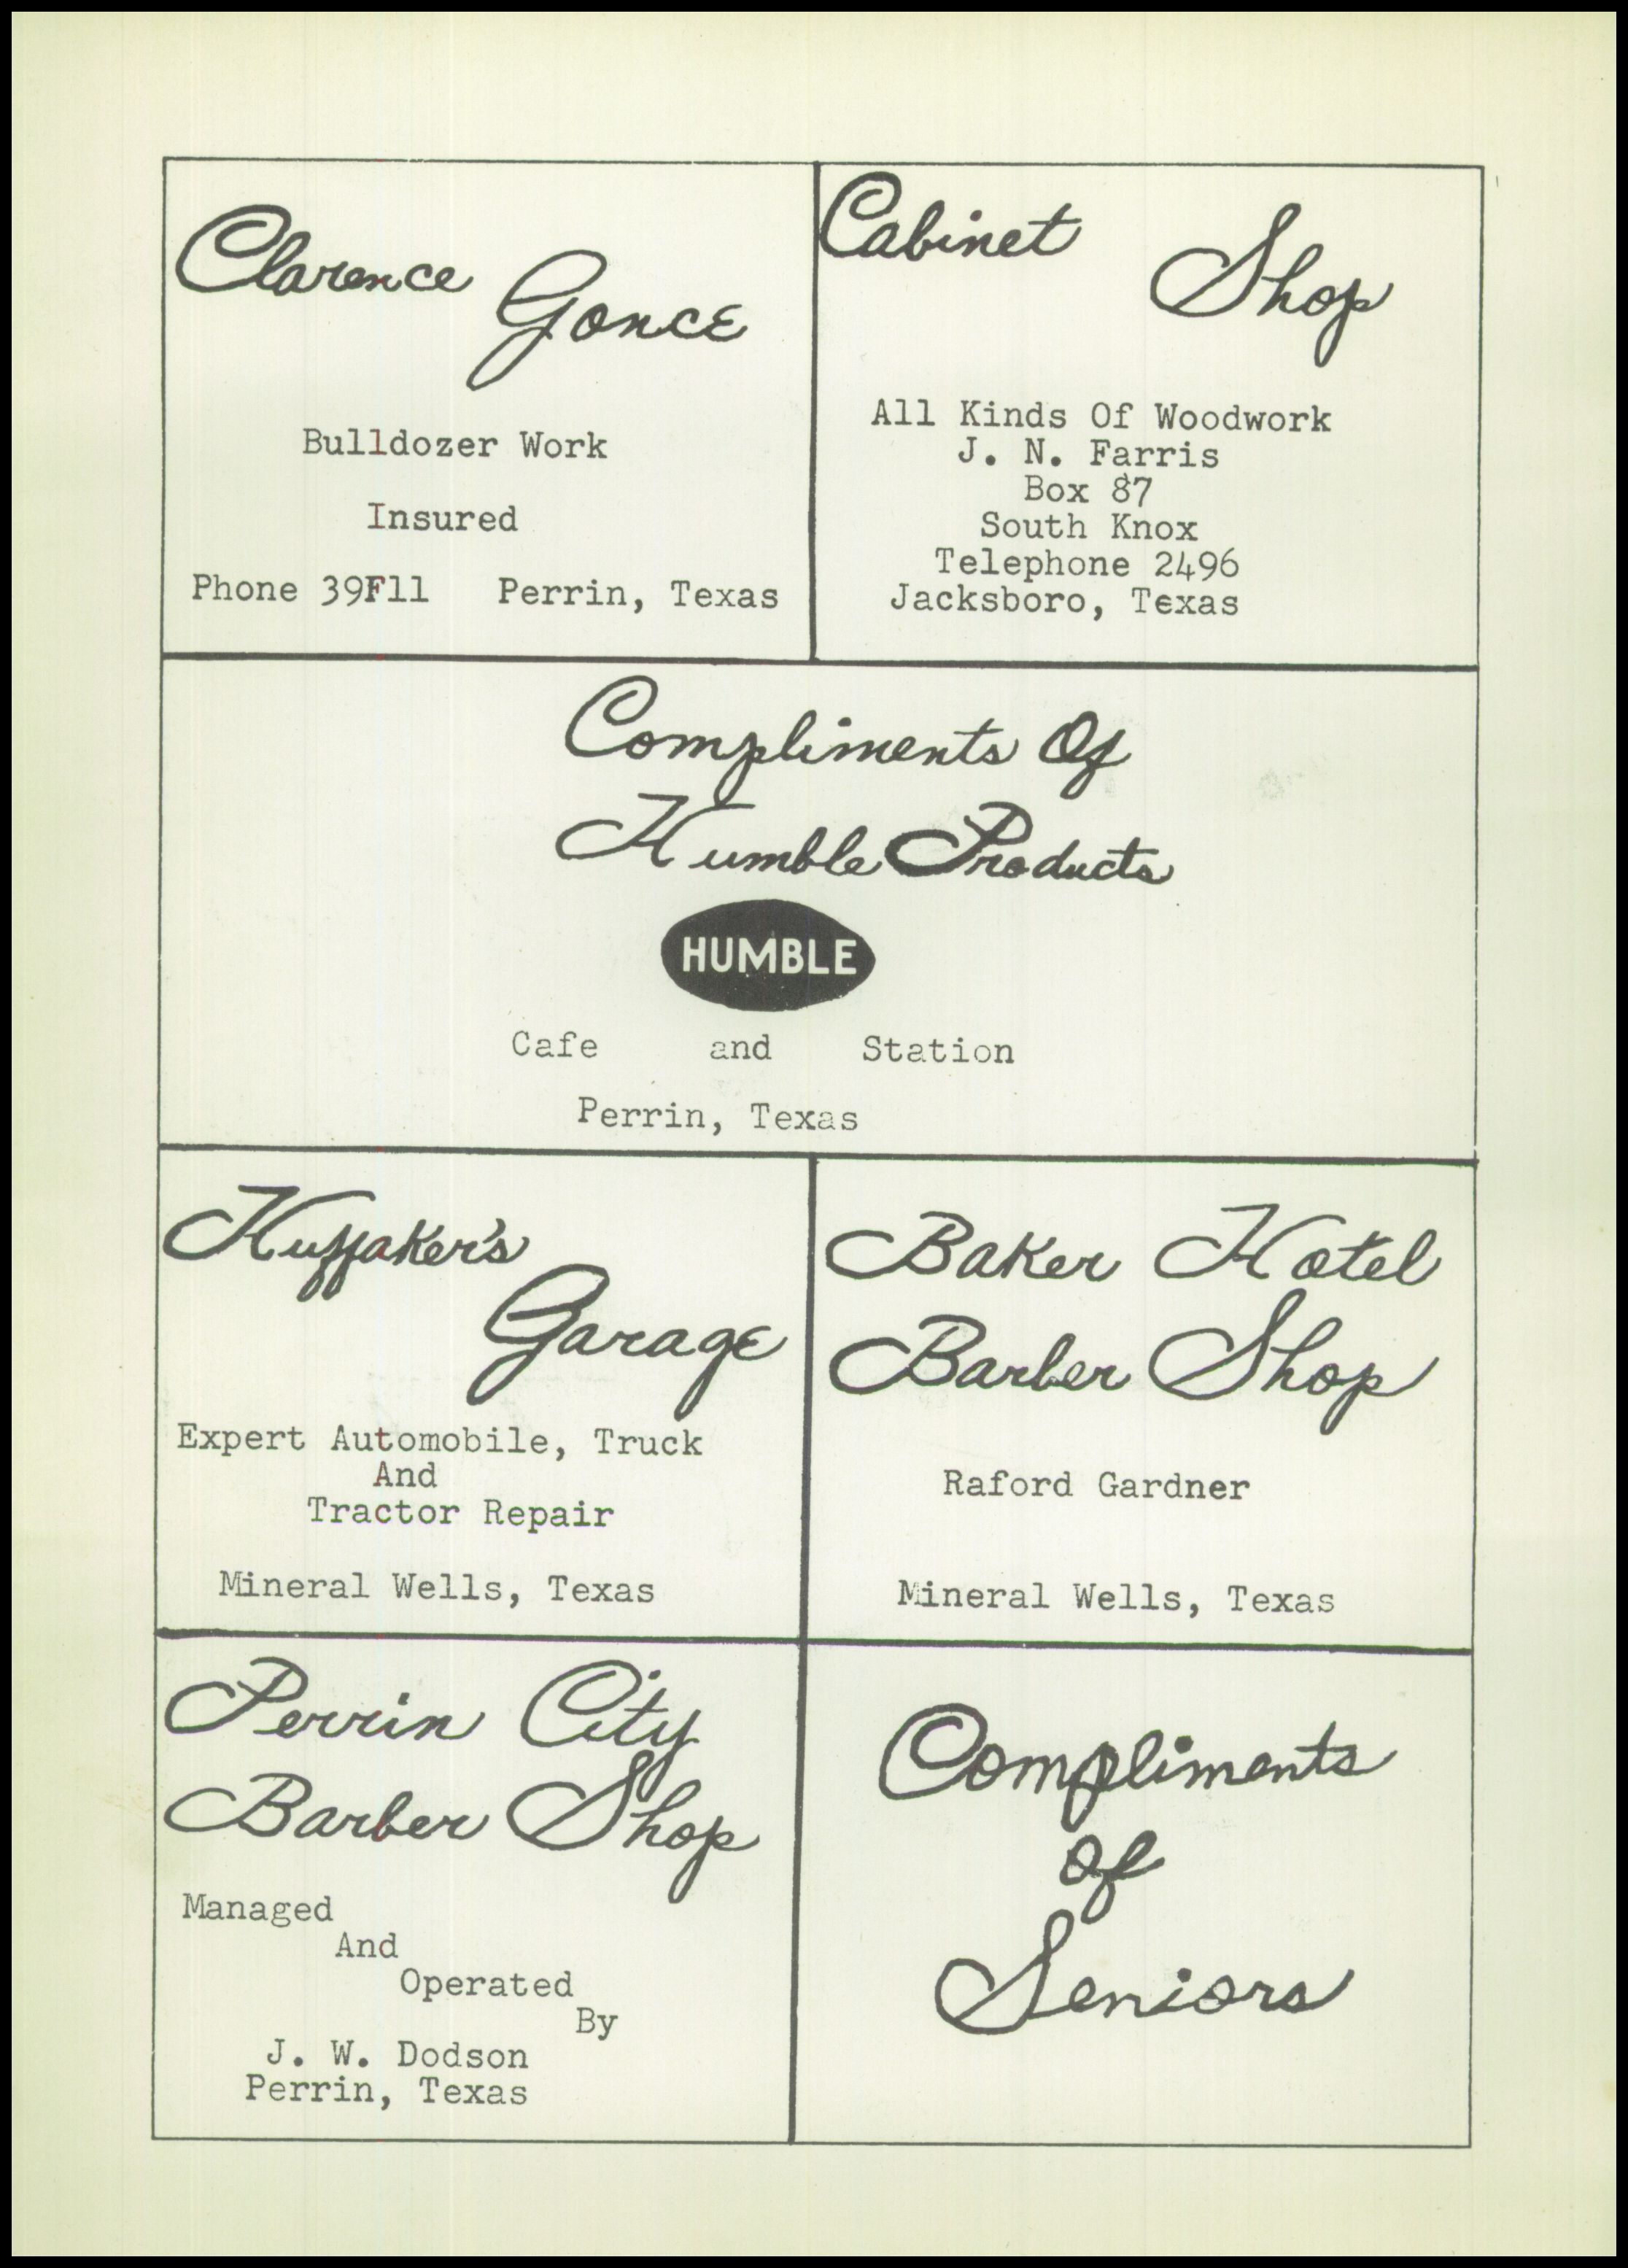 Clarence
Gonce
Bulldozer Work
Insured
Phone 39F11 Perrin, Texas
Cabinet
Shop
All Kinds Of Woodwork
J. N. Farris
Box 87
South Knox
Telephone 2496
Jacksboro, Texas
Compliments Of
Humble Products
HUMBLE
Cafe and Station
Perrin, Texas
Huffaker's
Garage
Expert Automobile, Truck
And
Tractor Repair
Mineral Wells, Texas
Baker Hotel
Barber Shop
Raford Gardner
Mineral Wells, Texas
Perrin City
Barber Shop
Managed
And
Operated
By
J. W. Dodson
Perrin, Texas
Compliments
of
Seniors